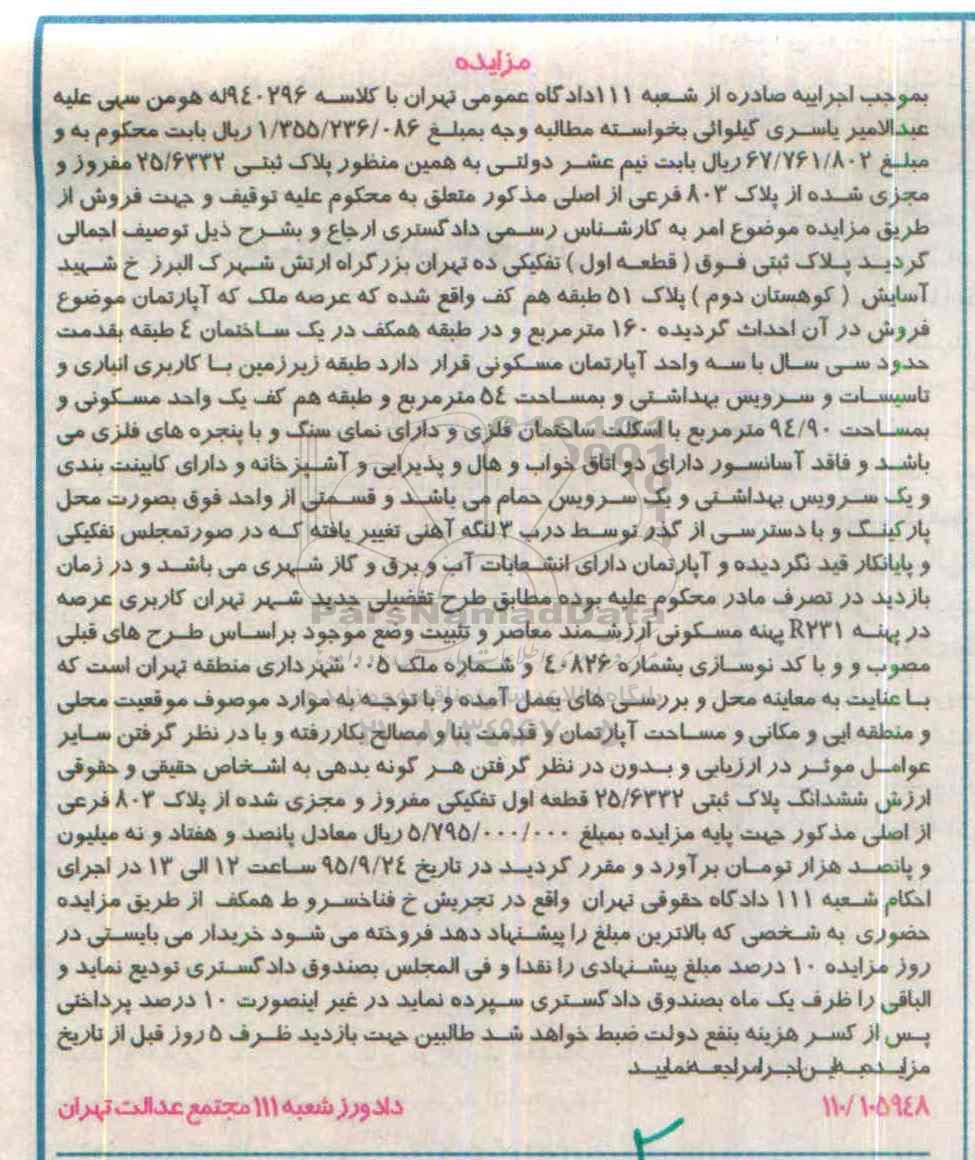 مزایده
بموجب اجراییه صادره از شعبه ۱۱۱دادگاه عمومی تهران با کلاسه ۹٤۰۲۹۶له هومن سهی علیه
عبدالامیر یاسری گیلوائی بخواسته مطالبه وجه بمبلغ ۱/۳۵۵/۲۳۶/۰۸۶ ریال بابت محکوم به و
مبلغ ۶۷/۷۶۱/۸۰۲ ریال بابت نیم عشر دولتی به همین منظور پلاک ثبتی ۲۵/۶۳۳۲ مفروز و
مجزی شده از پلاک ۸۰۳ فرعی از اصلی مذکور متعلق به محکوم علیه توقیف و جهت فروش از
طریق مزایده موضوع امر به کارشناس رسمی دادگستری ارجاع و بشرح ذیل توصیف اجمالی
گردید پلاک ثبتی فوق ( قطعه اول ) تفکیکی ده تهران بزرگراه ارتش شهرک البرز خ شهید
آسایش ( کوهستان دوم ) پلاک ۵۱ طبقه هم کف واقع شده که عرصه ملک که آپارتمان موضوع
فروش در آن احداث گردیده ۱۶۰ مترمربع و در طبقه همکف در یک ساختمان ٤ طبقه بقدمت
حدود سی سال با سه واحد آپارتمان مسکونی قرار دارد طبقه زیرزمین با کاربری انباری و
تاسیسات و سرویس بهداشتی و بمساحت ۵٤ مترمربع و طبقه هم کف یک واحد مسکونی و
بمساحت ۹٤/۹۰ مترمربع با اسکلت ساختمان فلزی و دارای نمای سنگ و با پنجره های فلزی می
باشد و فاقد آسانسور دارای دو اتاق خواب و هال و پذیرایی و آشپزخانه و دارای کابینت بندی
و یک سرویس بهداشتی و یک سرویس حمام می باشد و قسمتی از واحد فوق بصورت محل
پارکینگ و با دسترسی از گذر توسط درب ۳لنگه آهنی تغییر یافته که در صورتمجلس تفکیکی
و پایانکار قید نگردیده و آپارتمان دارای انشعابات آب و برق و گاز شهری می باشد و در زمان
بازدید در تصرف مادر محکوم علیه بوده مطابق طرح تفضیلی جدید شهر تهران کاربری عرصه
در پهنه R۲۳۱ پهنه مسکونی ارزشمند معاصر و تثبیت وضع موجود براساس طرح های قبلی
مصوب و و با کد نوسازی بشماره ٤۰۸۲۶ و شماره ملک ۰۰۵ شهرداری منطقه تهران است که
با عنایت به معاینه محل و بررسی های بعمل آمده و با توجه به موارد موصوف موقعیت محلی
و منطقه ایی و مکانی و مساحت آپارتمان و قدمت بنا و مصالح بکاررفته و با در نظر گرفتن سایر
عوامل موثر در ارزیابی و بدون در نظر گرفتن هر گونه بدهی به اشخاص حقیقی و حقوقی
ارزش ششدانگ پلاک ثبتی ۲۵/۶۳۳۲ قطعه اول تفکیکی مفروز و مجزی شده از پلاک ۸۰۳ فرعی
از اصلی مذکور جهت پایه مزایده بمبلغ ۵/۷۹۵/۰۰۰/۰۰۰ ریال معادل پانصد و هفتاد و نه میلیون
و پانصد هزار تومان برآورد و مقرر گردید در تاریخ ۹۵/۹/۲٤ ساعت ۱۲ الی ۱۳ در اجرای
احکام شعبه ۱۱۱ دادگاه حقوقی تهران واقع در تجریش خ فناخسرو ط همکف از طریق مزایده
حضوری به شخصی که بالاترین مبلغ را پیشنهاد دهد فروخته می شود خریدار می بایستی در
روز مزایده ۱۰ درصد مبلغ پیشنهادی را نقدا و فی المجلس بصندوق دادگستری تودیع نماید و
الباقی را ظرف یک ماه بصندوق دادگستری سپرده نماید در غیر اینصورت ۱۰ درصد پرداختی
پس از کسر هزینه بنفع دولت ضبط خواهد شد طالبین جهت بازدید ظرف ۵ روز قبل از تاریخ
مزایده به این اجرا مراجعه نمایید
۱۱۰/۱۰۵۹٤۸
دادورز شعبه ۱۱۱ مجتمع عدالت تهران
ParsNamadData